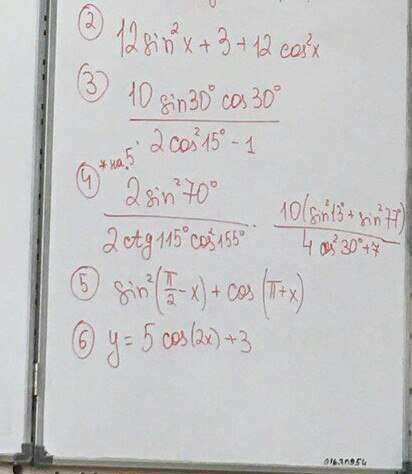 ② 12 sin²x + 3 + 12 cos²x
③ 10 sin30° cos30° / 2 cos²15° - 1
* на "5"
④ 2 sin²70° / 2 ctg 115° cos²155° · 10(sin²13° + sin²77) / 4 cos²30° + 7
⑤ sin²(π/2 - x) + cos(π + x)
⑥ y = 5 cos(2x) + 3